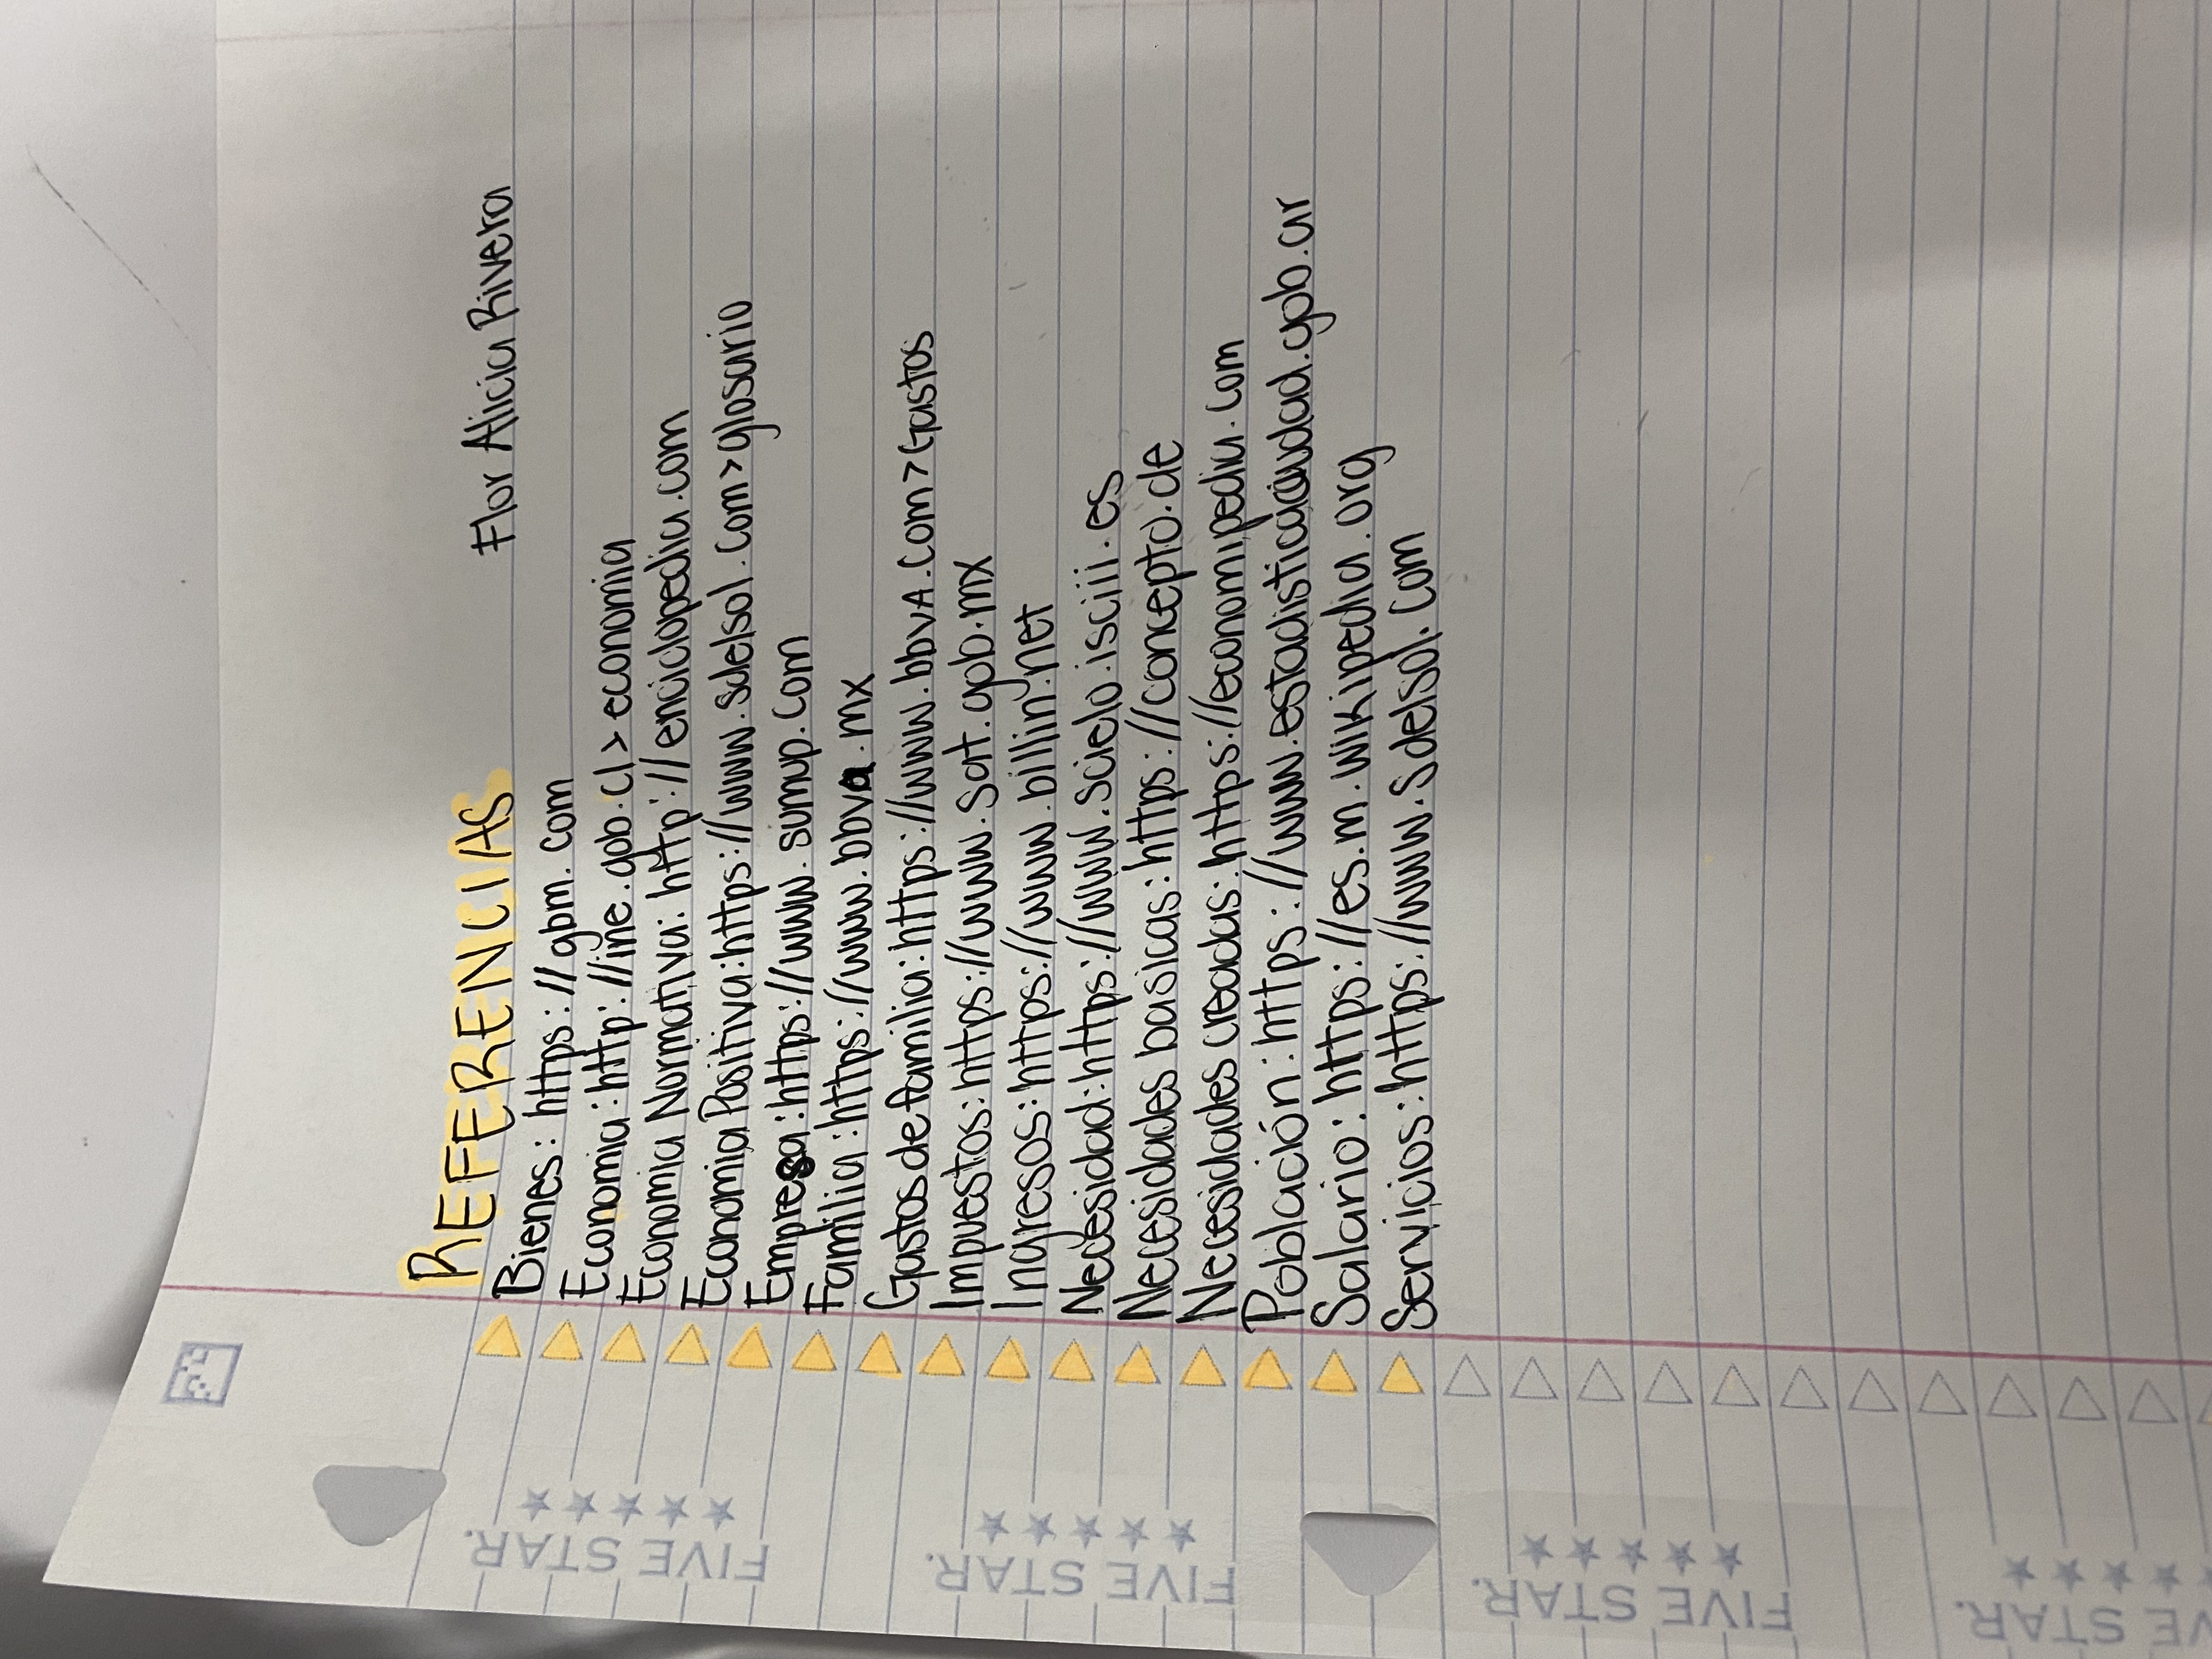 REFERENCIAS
Flor Alicia Rivera
Bienes: https://gbm.com
Economia: http://ine.gob.cl > economia
Economia Normativa: http://enciclopedia.com
Economia Positiva: https://www.sdelsol.com > glosario
Empresa: https://www.sumup.com
Familia: https://www.bbva.mx
Gastos de familia: https://www.bbvA.com > Gastos
Impuestos: https://www.sat.gob.mx
Ingresos: https://www.billin.net
Necesidad: https://www.scielo.isciii.es
Necesidades basicas: https://concepto.de
Necesidades creadas: https://economipedia.com
Población: https://www.estadisticaciudad.gob.ar
Salario: https://es.m.wikipedia.org
Servicios: https://www.sdelsol.com
FIVE STAR.
FIVE STAR.
FIVE STAR.
FIVE STAR.